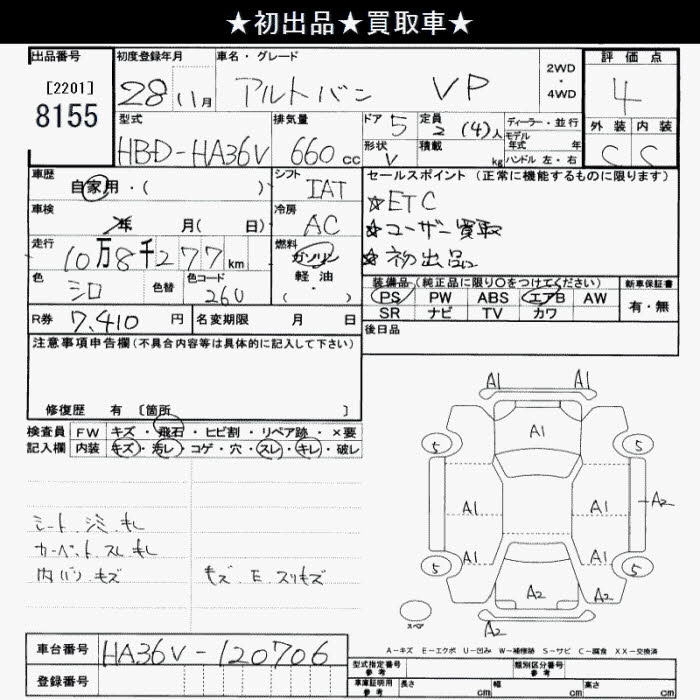 ★初出品★買取車★
出品番号 初度登録年月 車名・グレード 2WD・4WD 評価点
[2201] 8155 28 11月 アルトバン VP 4
型式 排気量 ドア 5 定員 2(4)人 ディーラー・並行 外装 内装
HBD-HA36V 660cc 形状 V 積載 kg モデル年式 年 ハンドル 左・右 C C
車歴 自家用・( ) シフト IAT セールスポイント(正常に機能するものに限ります)
車検 年 月( 日) 冷房 AC ☆ETC
☆ユーザー買取
走行 10万8千277km 燃料 ガソリン 軽油・( ) ☆初出品
色 シロ 色替 色コード 26U 装備品(純正品に限り○をつけてください) 新車保証書
PS PW ABS エアB AW 有・無
SR ナビ TV カワ
R券 7,410円 名変期限 月 日 後日品
注意事項申告欄(不具合内容等は具体的に記入して下さい)
修復歴 有 〔箇所 〕
検査員 FW キズ・飛石・ヒビ割・リペア跡・×要
記入欄 内装 キズ・汚レ・コゲ・穴・スレ・キレ・破レ
A1 A1
A1
5 5
A1 A1 A2
A1 A1
5 5
A2 A2
スペア A2
シート シミ キレ
カーペット スレ キレ
内バリ キズ キズ E スリキズ
A-キズ E-エクボ U-凹み W-補修跡 S-サビ C-腐食 XX-交換済
車台番号 HA36V-120706
登録番号
型式指定番号 参考 類別区分番号 参考
車庫証明用 参考 長さ cm 幅 cm 高さ cm